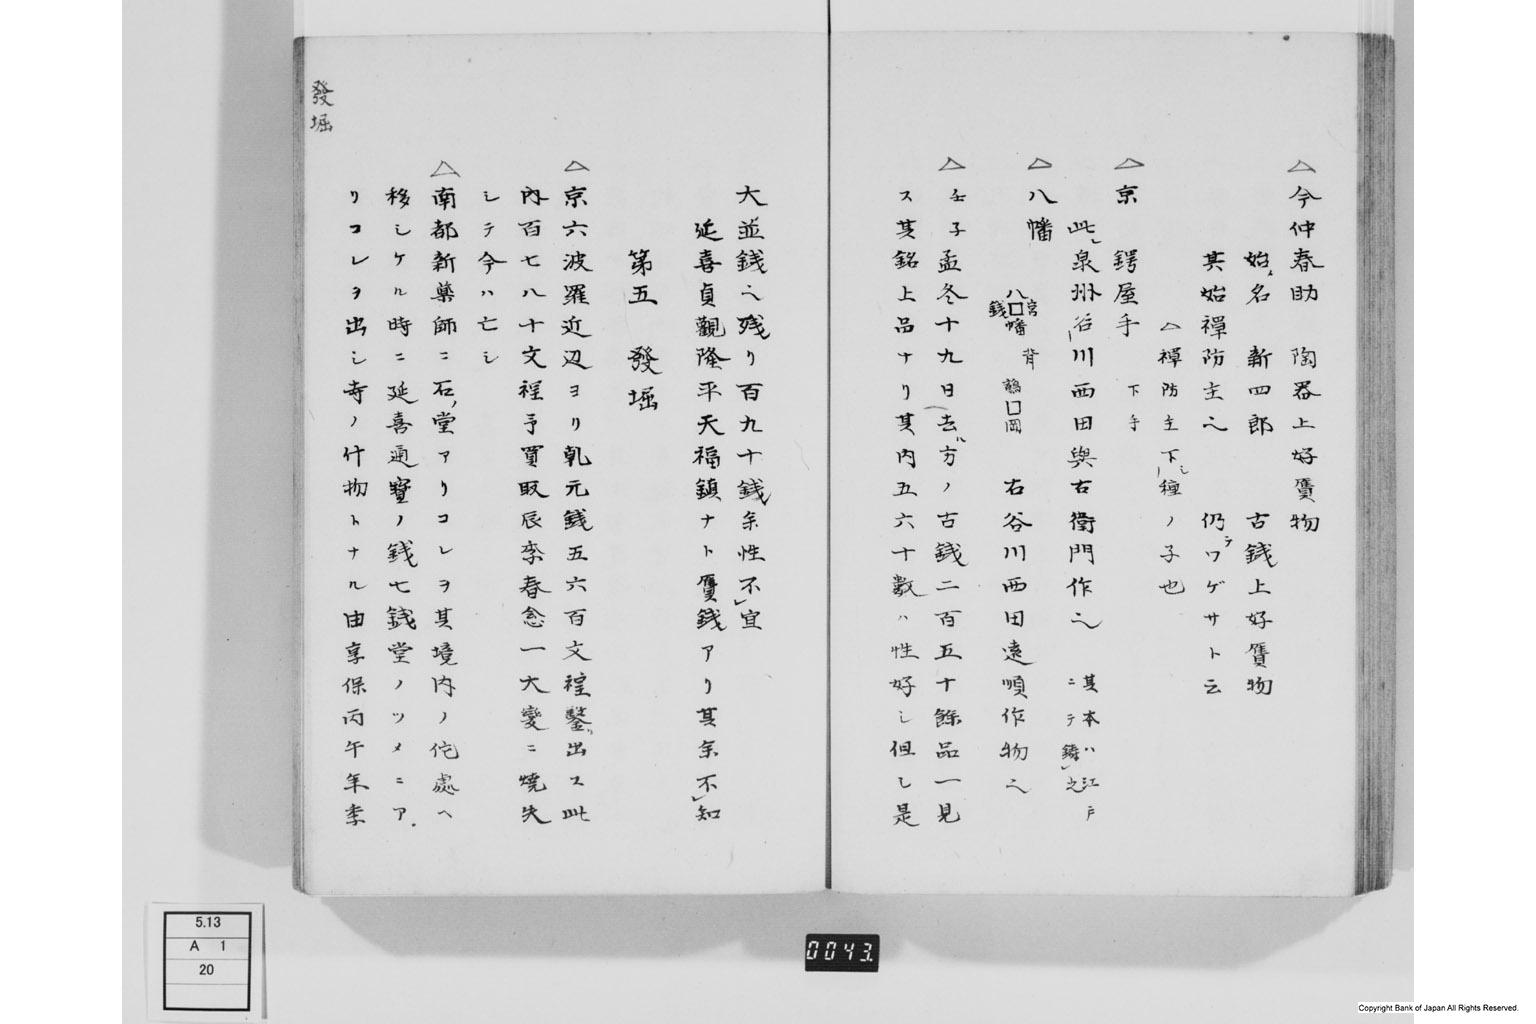 △今仲春助 陶器上好贋物
始メ名 新四郎 古銭上好贋物
其始禅防主也 仍テワゲサト云
△禅防主下シ種ノ子也
△京 鍔屋手 下手
此レ泉州谷川西田與右衛門作也 其本ハ江戸
ニテ鋳之
△八幡 八口幡 宮銭 背 鶴口岡 右谷川西田遠順作物也
△壬子孟冬十九日去ハ方ノ古銭二百五十餘品一見
ス其銘上品ナリ其内五六十数ハ性好シ但し是
大並銭也残リ百九十銭余性不宜
延喜貞觀隆平天福鎮ナト贋銭アリ其余不知
第五 發堀
△京六波羅近辺ヨリ乹元銭五六百文程鑿リ出ス此
内百七八十文程予買取辰季春念一大變ニ焼失
シテ今ハ亡シ
△南都新薬師ニ石ノ堂アリコレヲ其境内ノ佗處ヘ
移シケル時ニ延喜通寶ノ銭七銭堂ノツメニア
リコレヲ出シ寺ノ什物トナル由享保丙午年季
發堀
5.13
A 1
20
0043
Copyright Bank of Japan All Rights Reserved.